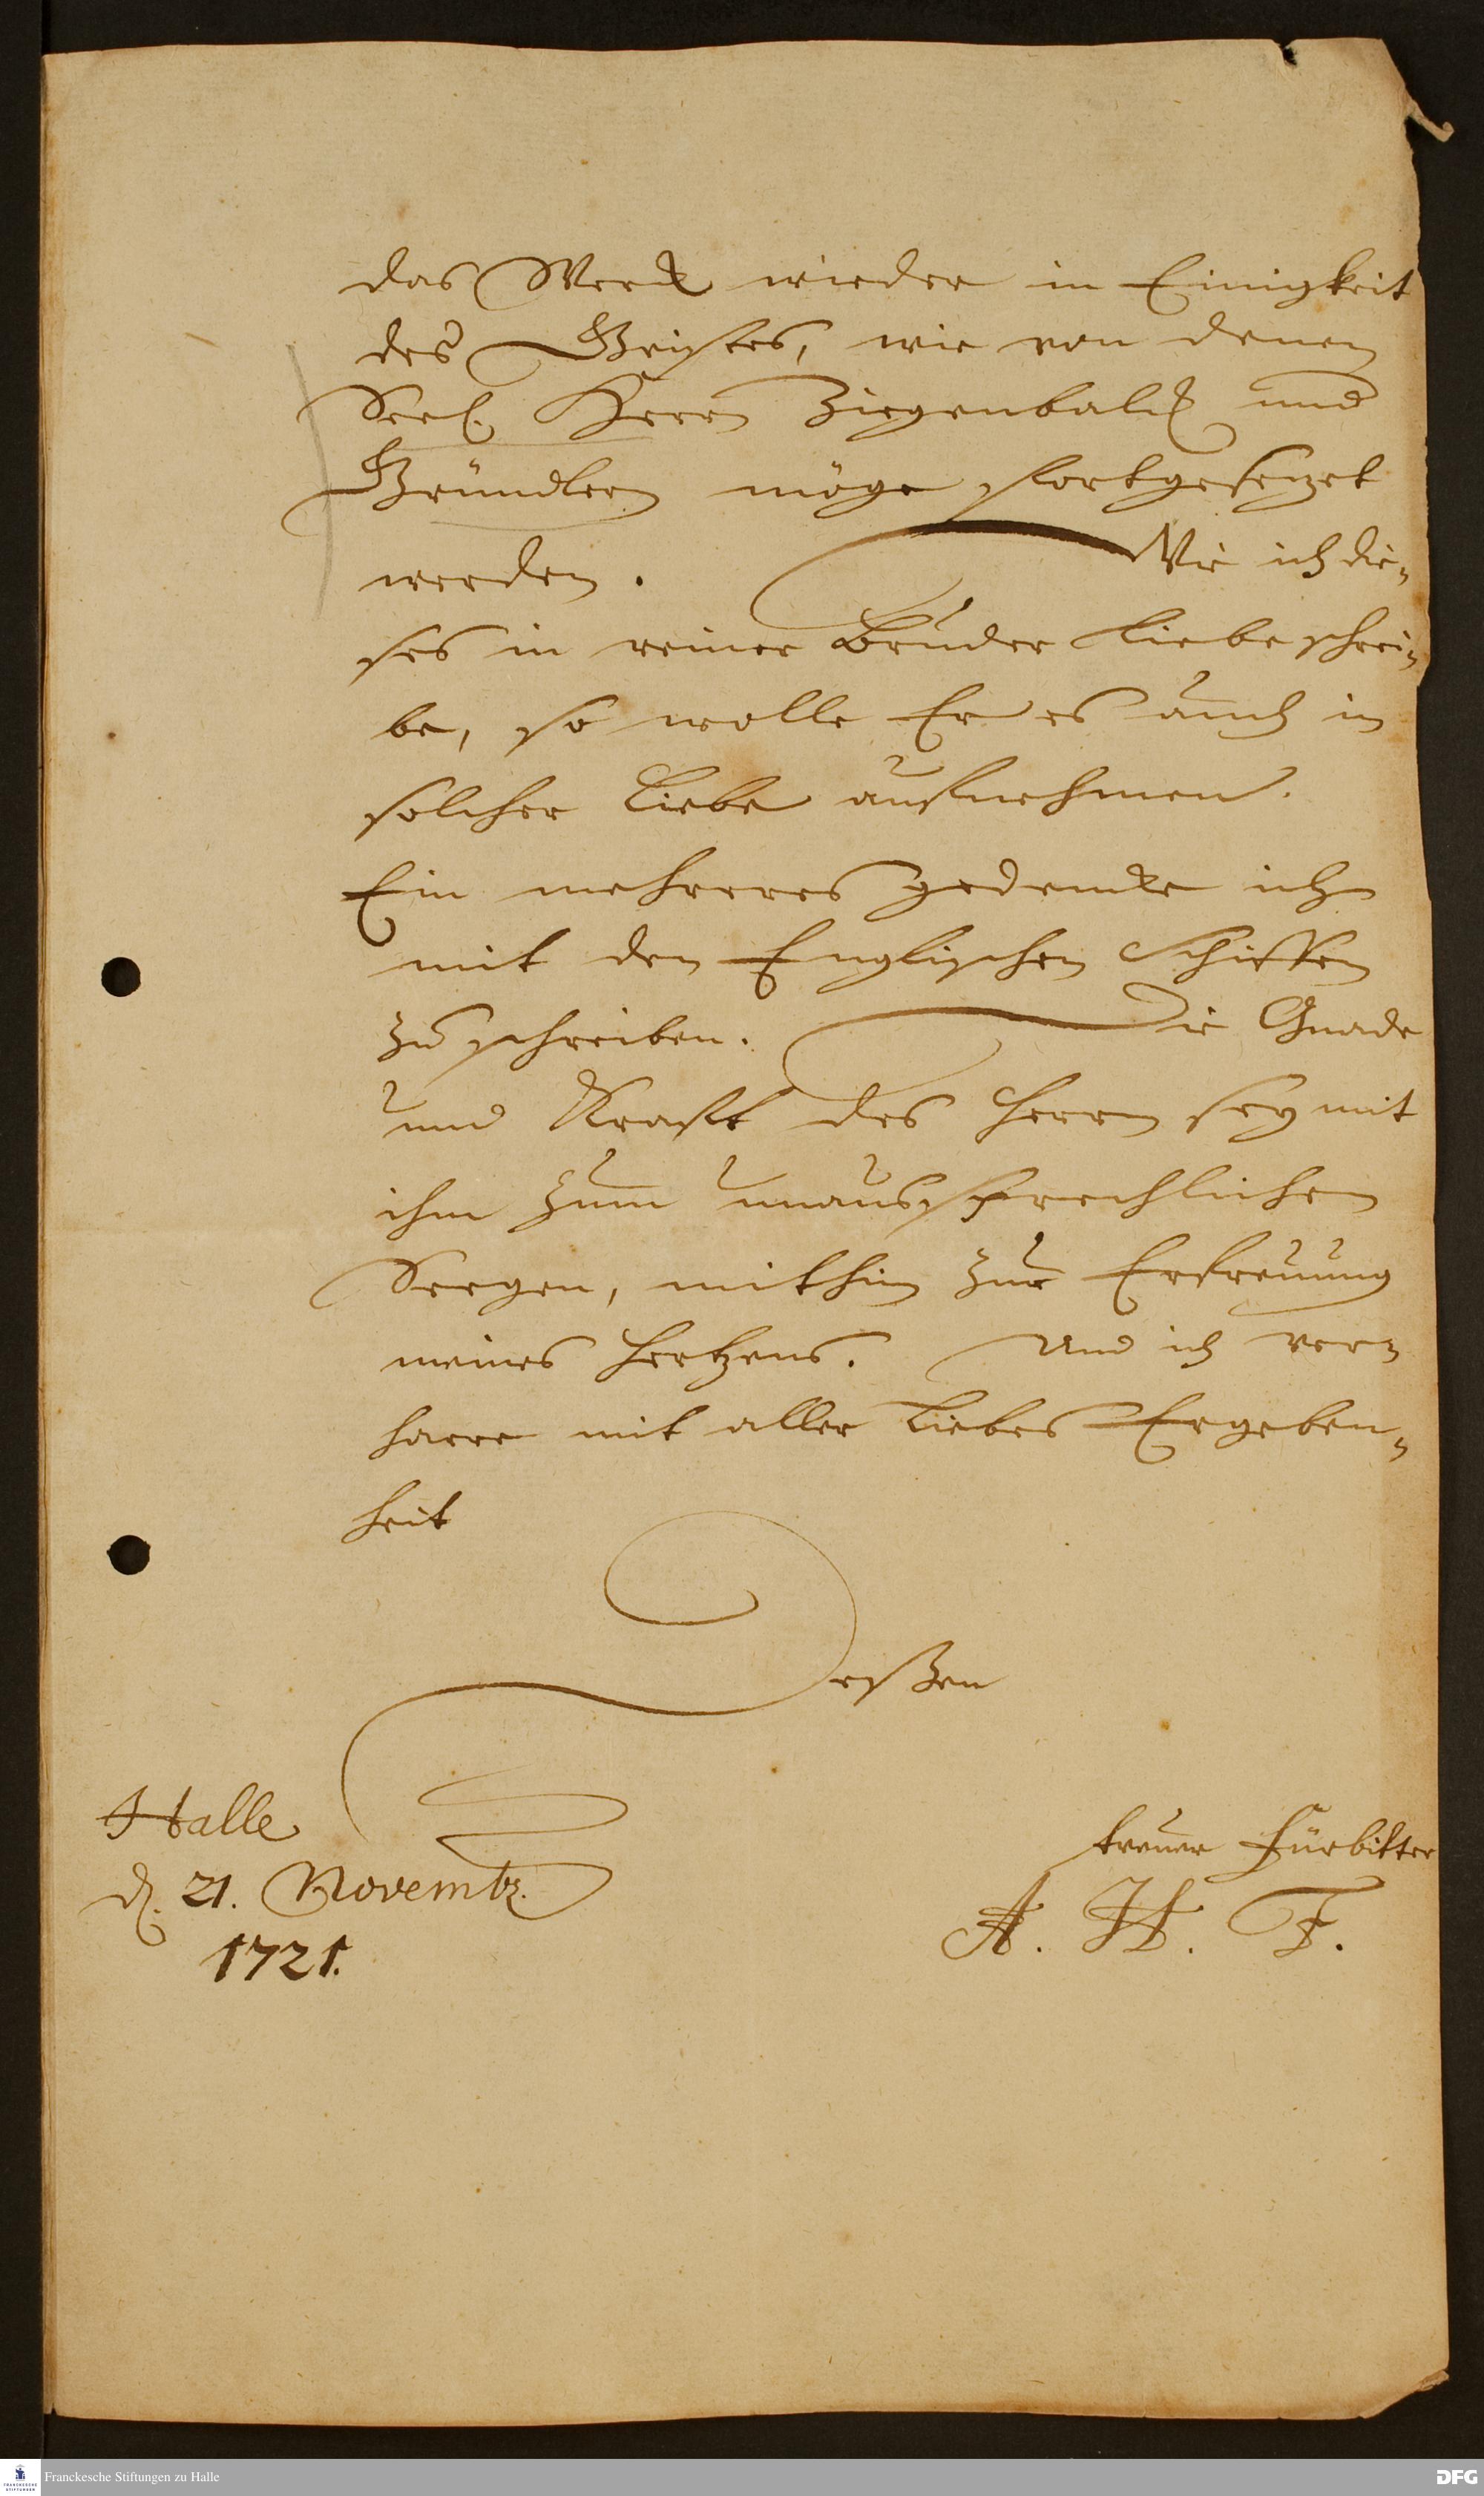 das Werck wieder in Einigkeit
des Geistes, wie von denen
Seel. Herrn Ziegenbalg und
Gründlern möge fortgesezet
werden. Wie ich die-
ses in reiner Bruder Liebe schrei-
be, so wolle Er es auch in
solcher Liebe aufnehmen.
Ein mehreres gedencke ich
mit den Englischen Schiffen
zu schreiben. Die Gnade
und Krafft des Herrn sey mit
ihm zum unaussprechlichen
Seegen, mithin zur Erfreuung
meines Hertzens. Und ich ver-
harre mit aller Liebes Ergeben-
heit
Deßen
treuer Fürbitter
A. H. F.
Halle
d. 21. Novembr.
1721.
Franckesche Stiftungen zu Halle
DFG